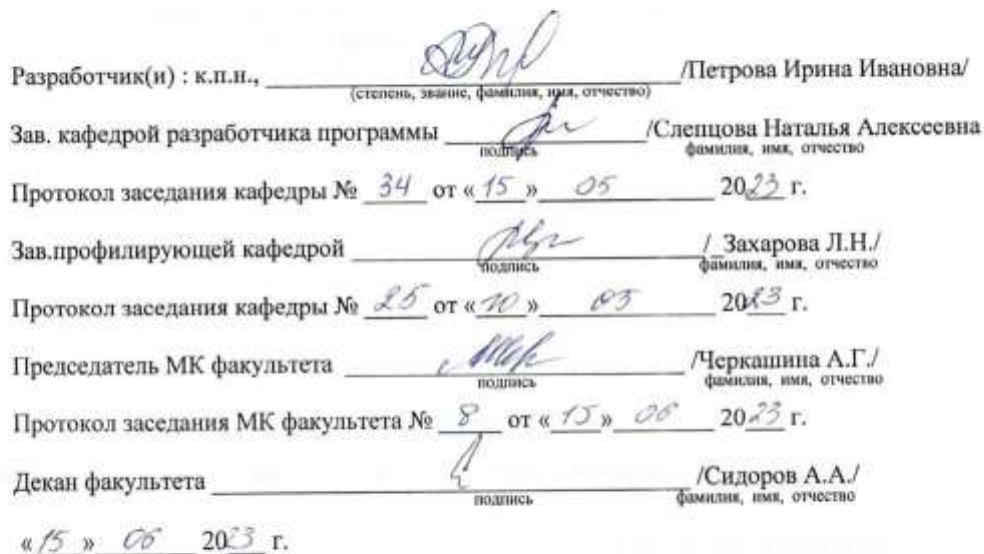 Разработчик(и) : к.п.н., /Петрова Ирина Ивановна/
(степень, звание, фамилия, имя, отчество)
Зав. кафедрой разработчика программы /Слепцова Наталья Алексеевна
подпись фамилия, имя, отчество
Протокол заседания кафедры № 34 от « 15 » 05 2023 г.
Зав.профилирующей кафедрой / Захарова Л.Н./
подпись фамилия, имя, отчество
Протокол заседания кафедры № 25 от « » 05 2023 г.
Председатель МК факультета /Черкашина А.Г./
подпись фамилия, имя, отчество
Протокол заседания МК факультета № 8 от « 15 » 06 2023 г.
Декан факультета /Сидоров А.А./
подпись фамилия, имя, отчество
« 15 » 06 2023 г.